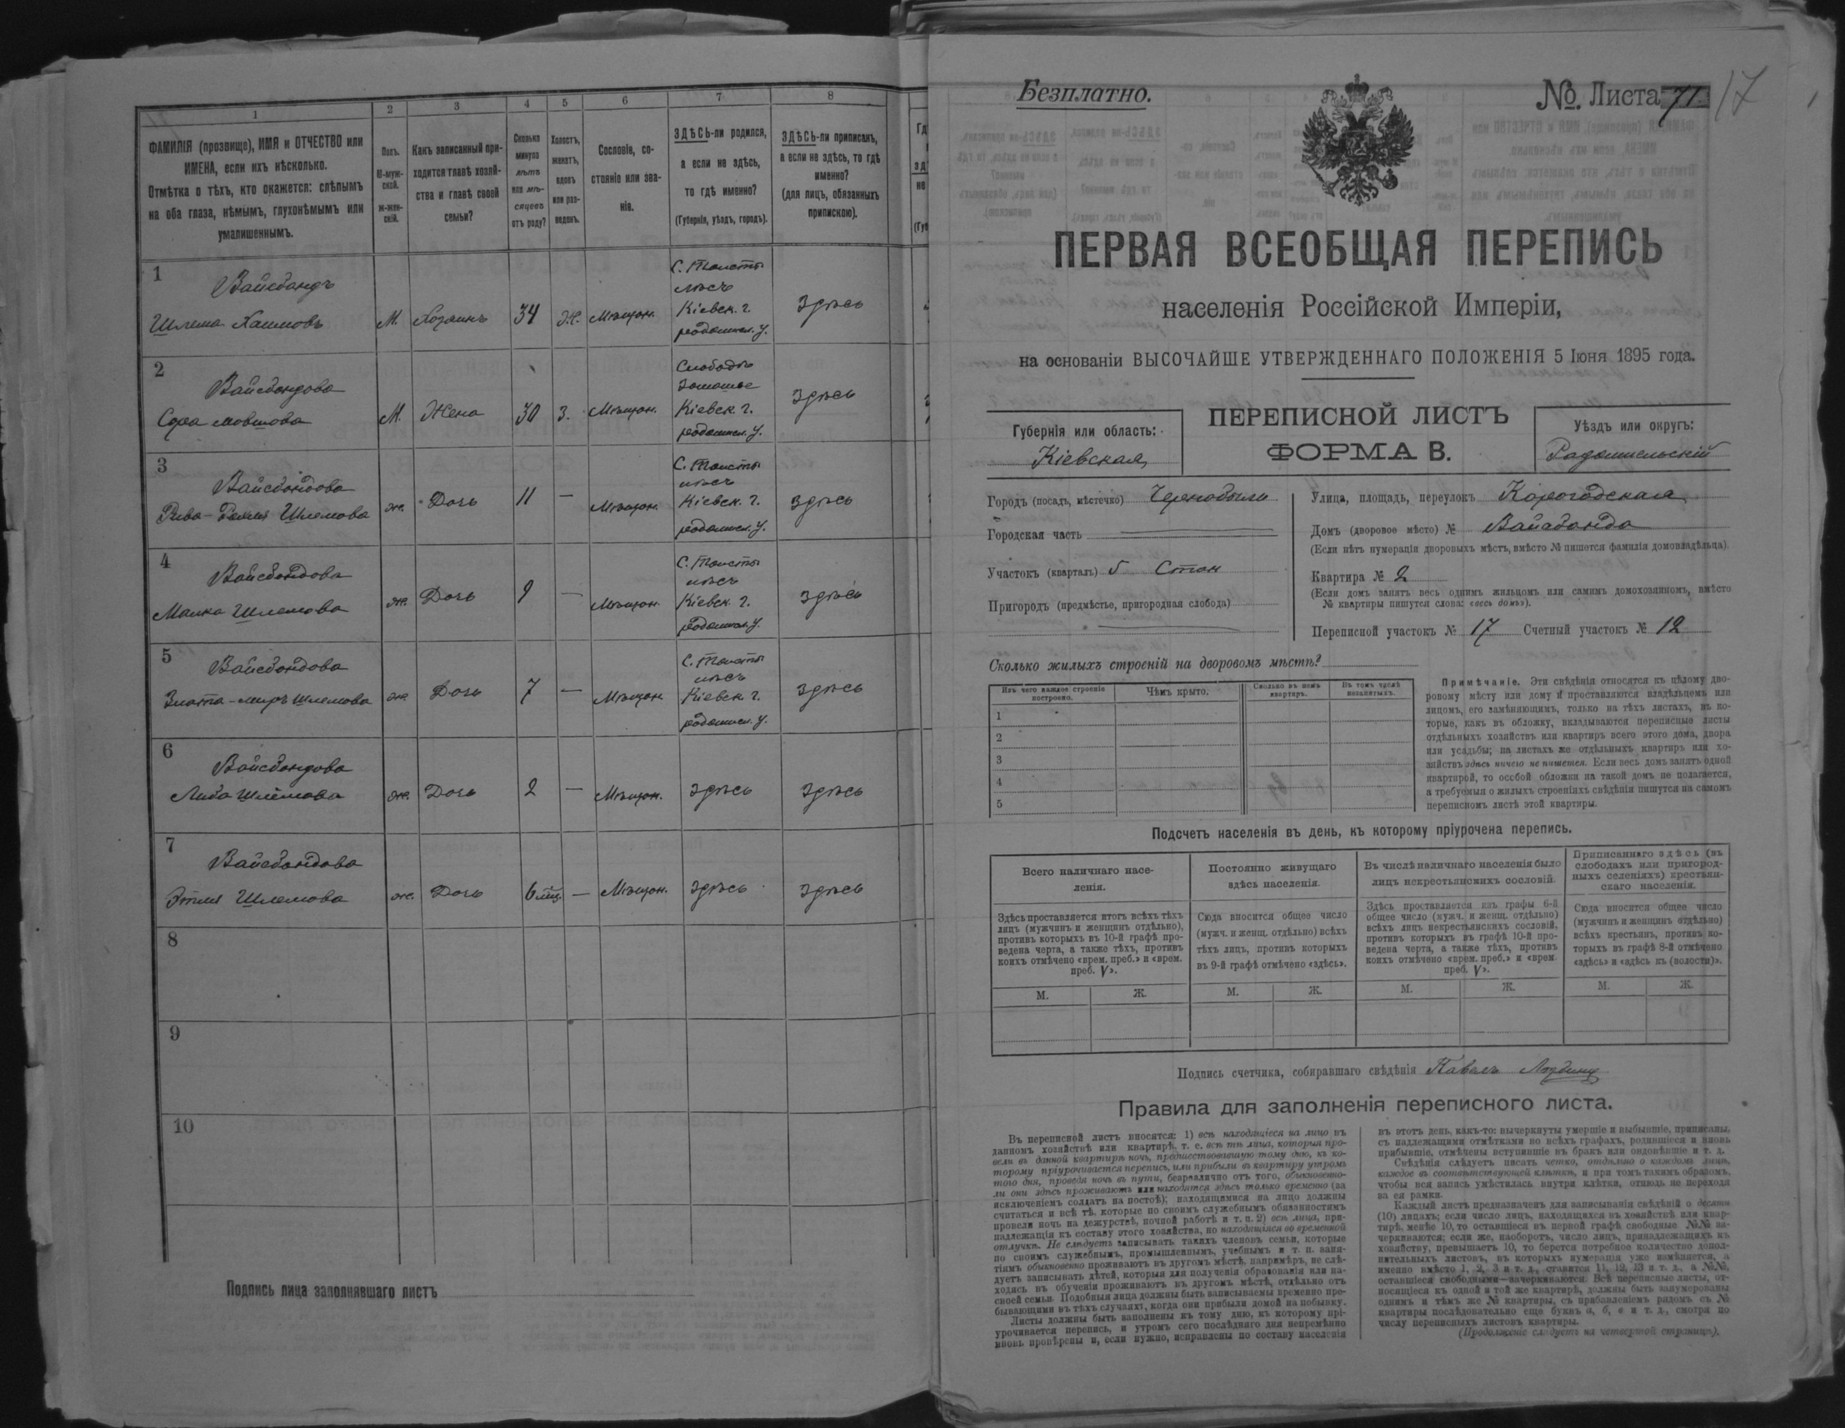 1
2
3
4
5
6
7
8
ФАМИЛІЯ (прозвище), ИМЯ и ОТЧЕСТВО или
ИМЕНА, если ихъ нѣсколько.
Отмѣтка о тѣхъ, кто окажется: слѣпымъ
на оба глаза, нѣмымъ, глухонѣмымъ или
умалишеннымъ.
Полъ.
М-муж-
ской.
Ж-жен-
скій.
Какъ записанный при-
ходится главѣ хозяй-
ства и главѣ своей
семьи?
Сколько
минуло
лѣтъ
или мѣ-
сяцевъ
отъ роду?
Холостъ,
женатъ,
вдовъ
или раз-
веденъ.
Сословіе, со-
стояніе или зва-
ніе.
ЗДѢСЬ-ли родился,
а если не здѣсь,
то гдѣ именно?
(Губернія, уѣздъ, городъ).
ЗДѢСЬ-ли приписанъ,
а если не здѣсь, то гдѣ
именно?
(для лицъ, обязанныхъ
припискою).
1
Вайсбандъ
Шлема Хаимовъ
М. Хозяинъ 34 Ж. Мѣщан.
С. Толсты
лѣсъ
Кіевск. г.
радомысл. у.
здѣсь
2
Вайсбандова
Сура мовшова
М. Жена 30 З. Мѣщан.
Кіевск. г.
радомысл. у.
здѣсь
3
Вайсбандова
Шлемова
же. Дочь 11 — Мѣщан.
С. Толсты
лѣсъ
Кіевск. г.
радомысл. у.
здѣсь
4
Вайсбандова
Малка Шлемова
же. Дочь 9 — Мѣщан.
С. Толсты
лѣсъ
Кіевск. г.
радомысл. у.
здѣсь
5
Вайсбандова
Злата- Шлемова
же. Дочь 7 — Мѣщан.
С. Толсты
лѣсъ
Кіевск. г.
радомысл. у.
здѣсь
6
Вайсбандова
Либа Шлемова
же. Дочь 2 — Мѣщан. здѣсь здѣсь
7
Вайсбандова
Этля Шлемова
же. Дочь 6 мѣц. — Мѣщан. здѣсь здѣсь
8
9
10
Подпись лица заполнявшаго листъ
Безплатно.
№. Листа 71 17
ПЕРВАЯ ВСЕОБЩАЯ ПЕРЕПИСЬ
населенія Россійской Имперіи,
на основаніи ВЫСОЧАЙШЕ УТВЕРЖДЕННАГО ПОЛОЖЕНІЯ 5 Іюня 1895 года.
Губернія или область:
Кіевская
ПЕРЕПИСНОЙ ЛИСТЪ
ФОРМА В.
Уѣздъ или округъ:
Радомысльскій
Городъ (посадъ, мѣстечко) Чернобыль
Городская часть
Участокъ (кварталъ) 5 Стан
Пригородъ (предмѣстье, пригородная слобода)
Улица, площадь, переулокъ Корогодская
Домъ (дворовое мѣсто) № Вайсбанда
(Если нѣтъ нумераціи дворовыхъ мѣстъ, вмѣсто № пишется фамилія домовладѣльца)
Квартира № 2
(Если домъ занятъ весь однимъ жильцомъ или самимъ домохозяиномъ, вмѣсто
№ квартиры пишутся слова: «весь домъ»).
Переписной участокъ № 17 Счетный участокъ № 12
Сколько жилыхъ строеній на дворовомъ мѣстѣ?
Изъ чего каждое строеніе
построено.
Чѣмъ крыто.
Сколько въ немъ
квартиръ.
Въ томъ числѣ
незанятыхъ.
1
2
3
4
5
Примѣчаніе. Эти свѣдѣнія относятся къ цѣлому дво-
ровому мѣсту или дому и проставляются владѣльцемъ или
лицомъ, его замѣняющимъ, только на тѣхъ листахъ, въ ко-
торые, какъ въ обложку, вкладываются переписные листы
отдѣльныхъ хозяйствъ или квартиръ всего этого дома, двора
или усадьбы; на листахъ же отдѣльныхъ квартиръ или хо-
зяйствъ здѣсь ничего не пишется. Если весь домъ занятъ одной
квартирой, то особой обложки на такой домъ не полагается,
а требуемыя о жилыхъ строеніяхъ свѣдѣнія пишутся на самомъ
переписномъ листѣ этой квартиры.
Подсчетъ населенія въ день, къ которому пріурочена перепись.
Всего наличнаго насе-
ленія.
Постоянно живущаго
здѣсь населенія.
Въ числѣ наличнаго населенія было
лицъ некрестьянскихъ сословій.
Приписаннаго здѣсь (въ
слободахъ или пригород-
ныхъ селеніяхъ) крестьян-
скаго населенія.
Здѣсь проставляется итогъ всѣхъ тѣхъ
лицъ (мужчинъ и женщинъ отдѣльно),
противъ которыхъ въ 10-й графѣ про-
ведена черта, а также тѣхъ, противъ
коихъ отмѣчено «врем. преб.» и «врем.
преб. V».
Сюда вносится общее число
(мужч. и женщ. отдѣльно) всѣхъ
тѣхъ лицъ, противъ которыхъ
въ 9-й графѣ отмѣчено «здѣсь».
Здѣсь проставляется изъ графы 6-й
общее число (мужч. и женщ. отдѣльно)
всѣхъ лицъ некрестьянскихъ сословій,
противъ которыхъ въ графѣ 10-й про-
ведена черта, а также тѣхъ, противъ
коихъ отмѣчено «врем. преб.» и «врем.
преб. V».
Сюда вносится общее число
(мужчинъ и женщинъ отдѣльно)
всѣхъ крестьянъ, противъ ко-
торыхъ въ графѣ 8-й отмѣчено
«здѣсь» и «здѣсь къ (волости)».
М. Ж. М. Ж. М. Ж. М. Ж.
Подпись счетчика, собиравшаго свѣдѣнія
Правила для заполненія переписного листа.
Въ переписной листъ вносятся: 1) всѣ находящіеся на лицо въ
данномъ хозяйствѣ или квартирѣ, т. е. всѣ тѣ лица, которыя про-
вели въ данной квартирѣ ночь, предшествовавшую тому дню, къ ко-
торому пріурочивается перепись, или прибыли въ квартиру утромъ
того дня, проведя ночь въ пути, безразлично отъ того, обыкновенно-
ли они здѣсь проживаютъ или находятся здѣсь только временно (за
исключеніемъ солдатъ на постоѣ); находящимися на лицо должны
считаться и всѣ тѣ, которые по своимъ служебнымъ обязанностямъ
провели ночь на дежурствѣ, ночной работѣ и т. п. 2) всѣ лица, при-
надлежащія къ составу этого хозяйства, но находящіяся во временной
отлучкѣ. Не слѣдуетъ записывать такихъ членовъ семьи, которые
по своимъ служебнымъ, промышленнымъ, учебнымъ и т. п. заня-
тіямъ обыкновенно проживаютъ въ другомъ мѣстѣ, напримѣръ, не слѣ-
дуетъ записывать дѣтей, которыя для полученія образованія или на-
ходясь въ обученіи проживаютъ въ другомъ мѣстѣ, отдѣльно отъ
своей семьи. Подобныя лица должны быть записываемы временно пре-
бывающими въ тѣхъ случаяхъ, когда они прибыли домой на побывку.
Листы должны быть заполнены къ тому дню, къ которому прі-
урочивается перепись, и утромъ сего послѣдняго дня непремѣнно
вновь провѣрены и, если нужно, исправлены по составу населенія
въ этотъ день, какъ-то: вычеркнуты умершіе и выбывшіе, приписаны,
съ надлежащими отмѣтками во всѣхъ графахъ, родившіеся и вновь
прибывшіе, отмѣчены вступившіе въ бракъ или овдовѣвшіе и т. д.
Свѣдѣнія слѣдуетъ писать четко, отдѣльно о каждомъ лицѣ,
каждое въ соотвѣтствующей клѣткѣ, и при томъ такимъ образомъ,
чтобы вся запись умѣстилась внутри клѣтки, отнюдь не переходя
за ея рамки.
Каждый листъ предназначенъ для записыванія свѣдѣній о десяти
(10) лицахъ; если число лицъ, находящихся въ хозяйствѣ или квар-
тирѣ, менѣе 10, то оставшіеся въ первой графѣ свободные №№ за-
черкиваются; если же, наоборотъ, число лицъ, принадлежащихъ къ
хозяйству, превышаетъ 10, то берется потребное количество допол-
нительныхъ листовъ, въ которыхъ нумерація уже измѣняется, а
именно вмѣсто 1, 2, 3 и т. д., ставится 11, 12, 13 и т. д., а №№,
оставшіеся свободными—зачеркиваются. Всѣ переписные листы, от-
носящіеся къ одной и той же квартирѣ, должны быть занумерованы
однимъ и тѣмъ же № квартиры, съ прибавленіемъ рядомъ съ №
квартиры послѣдовательно еще буквъ а, б, в и т. д., смотря по
числу переписныхъ листовъ квартиры.
(Продолженіе слѣдуетъ на четвертой страницѣ).